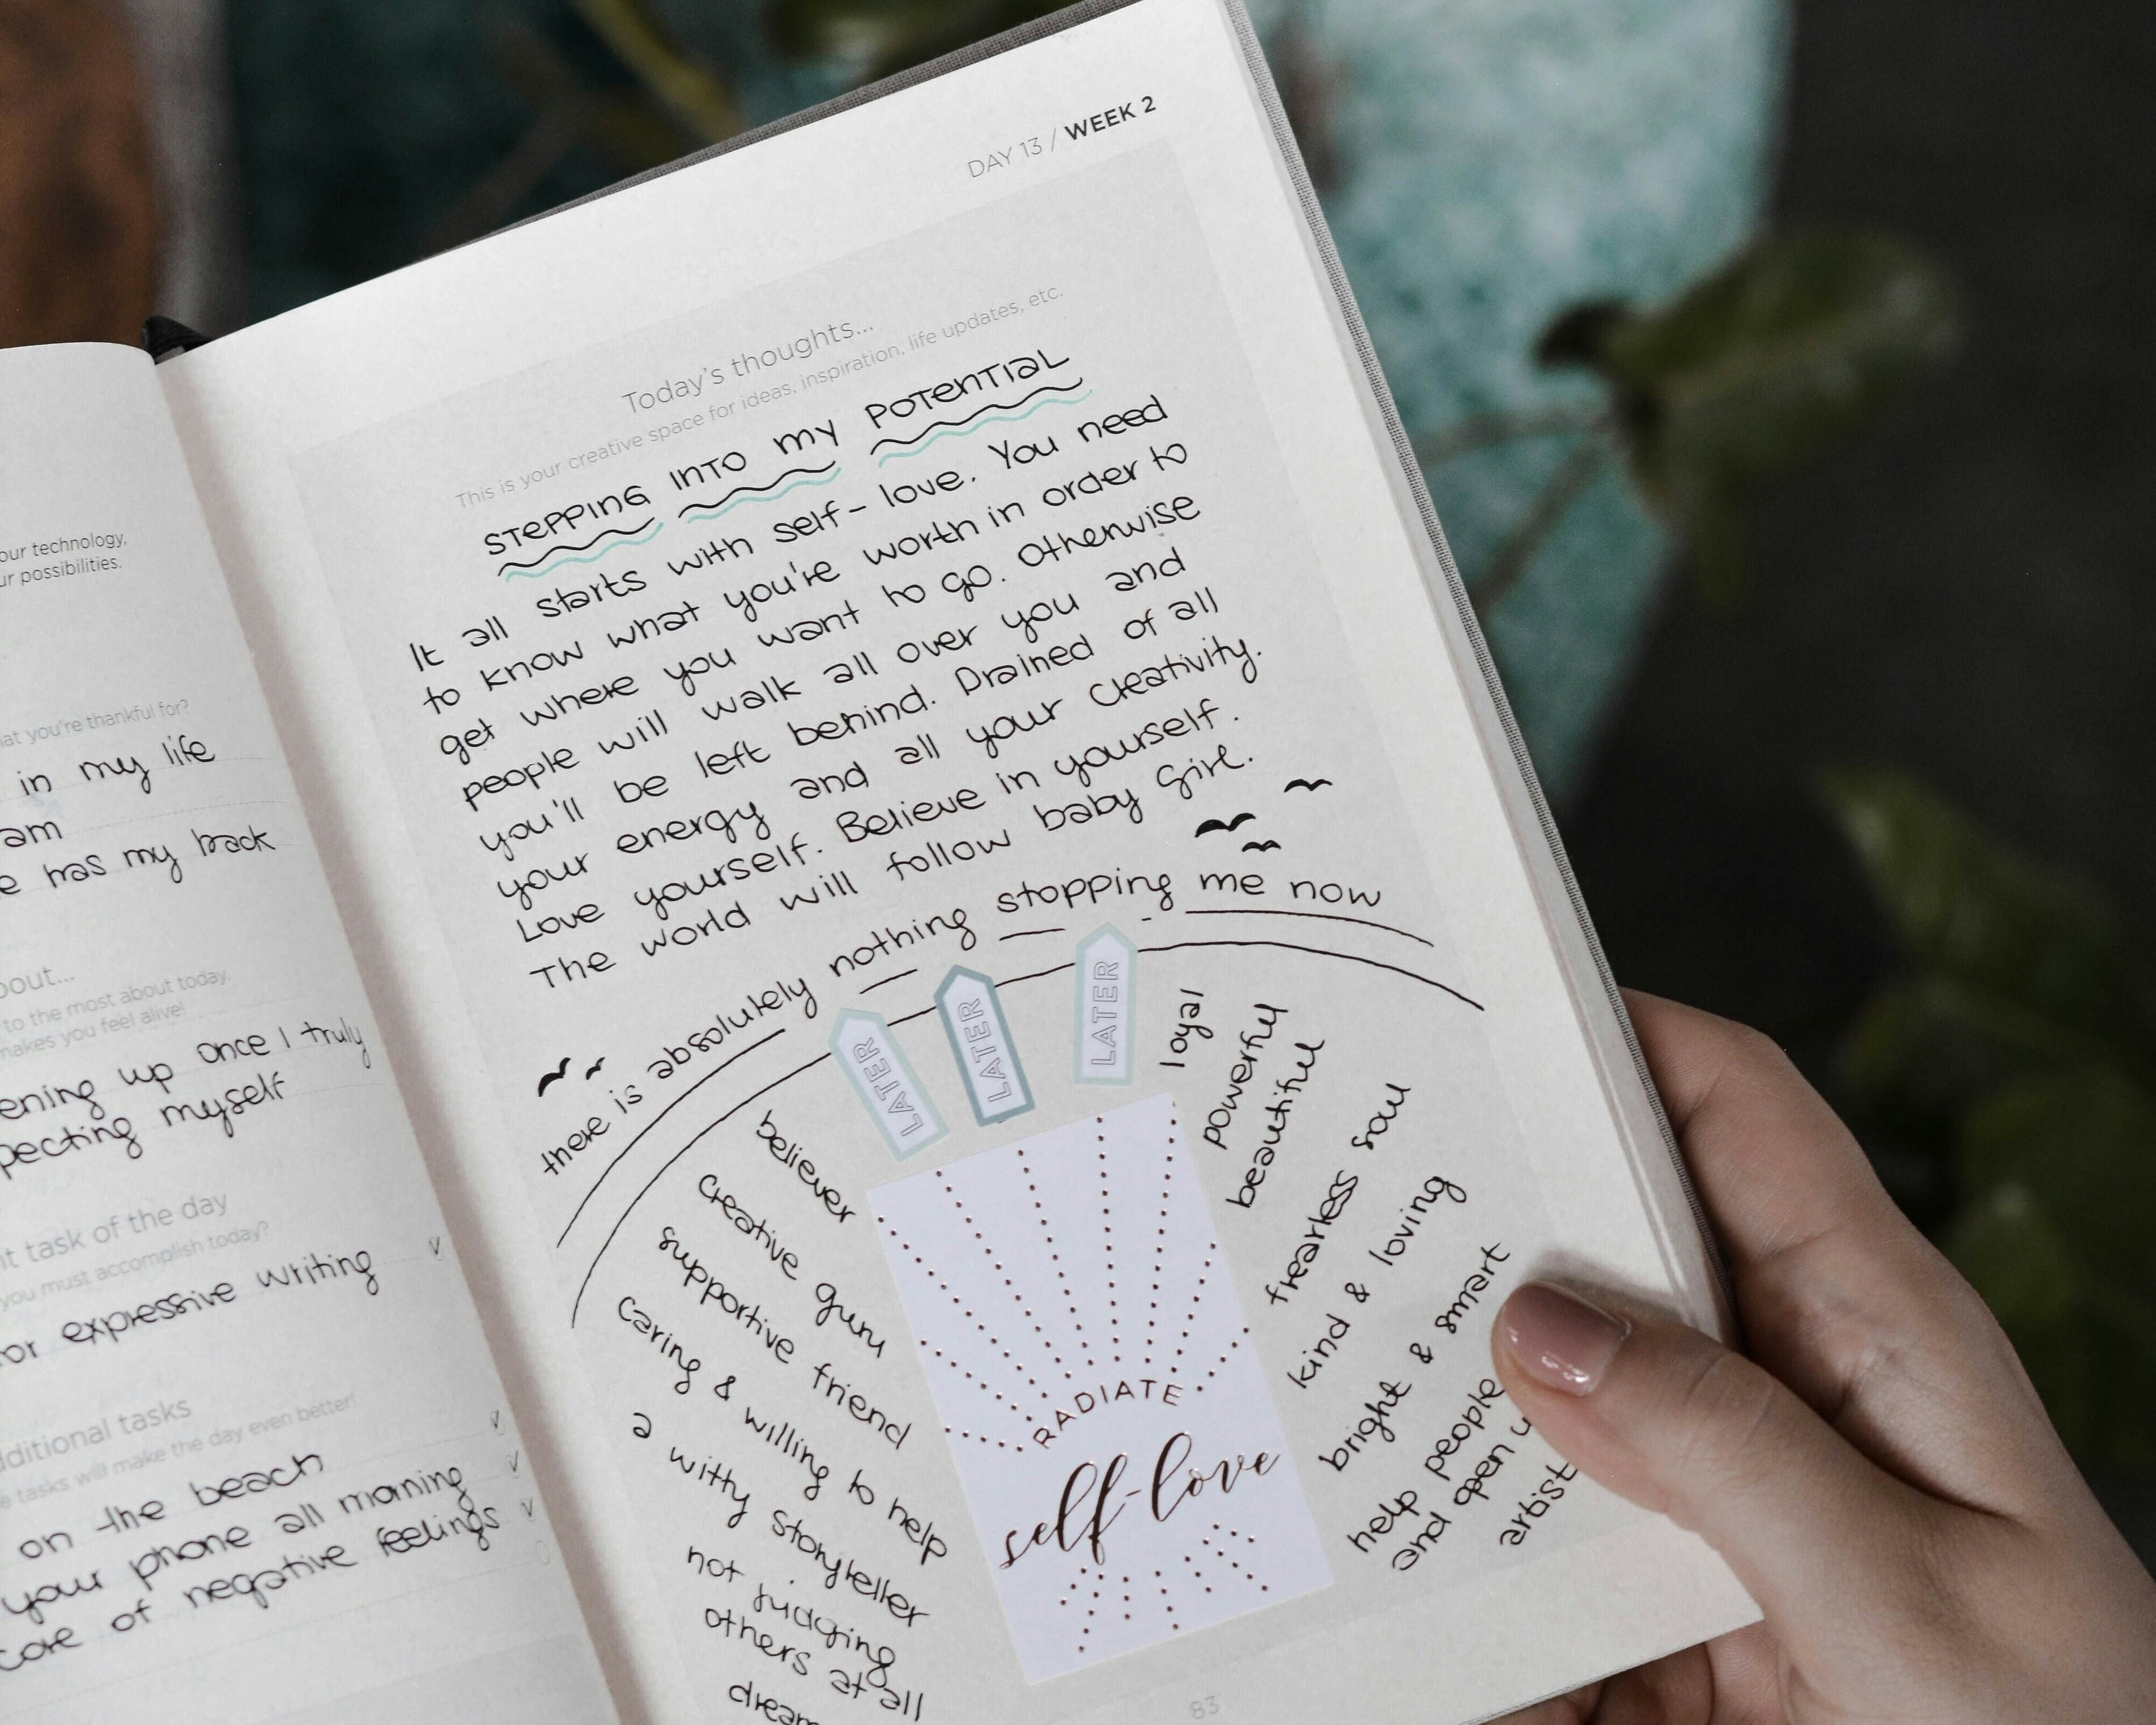 our technology,
ur possibilities.
at you're thankful for?
in my life
am
e has my back
bout...
to the most about today.
makes you feel alive!
ening up once I truly
pecting myself
nt task of the day
you must accomplish today?
for expressive writing
dditional tasks
e tasks will make the day even better!
on the beach
your phone all morning
care of negative feelings
DAY 13 / WEEK 2
Today's thoughts...
This is your creative space for ideas, inspiration, life updates, etc.
STEPPING INTO MY POTENTIAL
It all starts with self-love. You need
to know what you're worth in order to
get where you want to go. Otherwise
people will walk all over you and
you'll be left behind. Drained of all
your energy and all your creativity.
Love yourself. Believe in yourself.
The world will follow baby girl.
there is absolutely nothing stopping me now
LATER
LATER
LATER
believer
creative guru
supportive friend
caring & willing to help
a witty storyteller
not judging
others at all
dream
RADIATE
self-love
loyal
powerful
beautiful
fearless soul
kind & loving
bright & smart
help people
and open u
artist
83